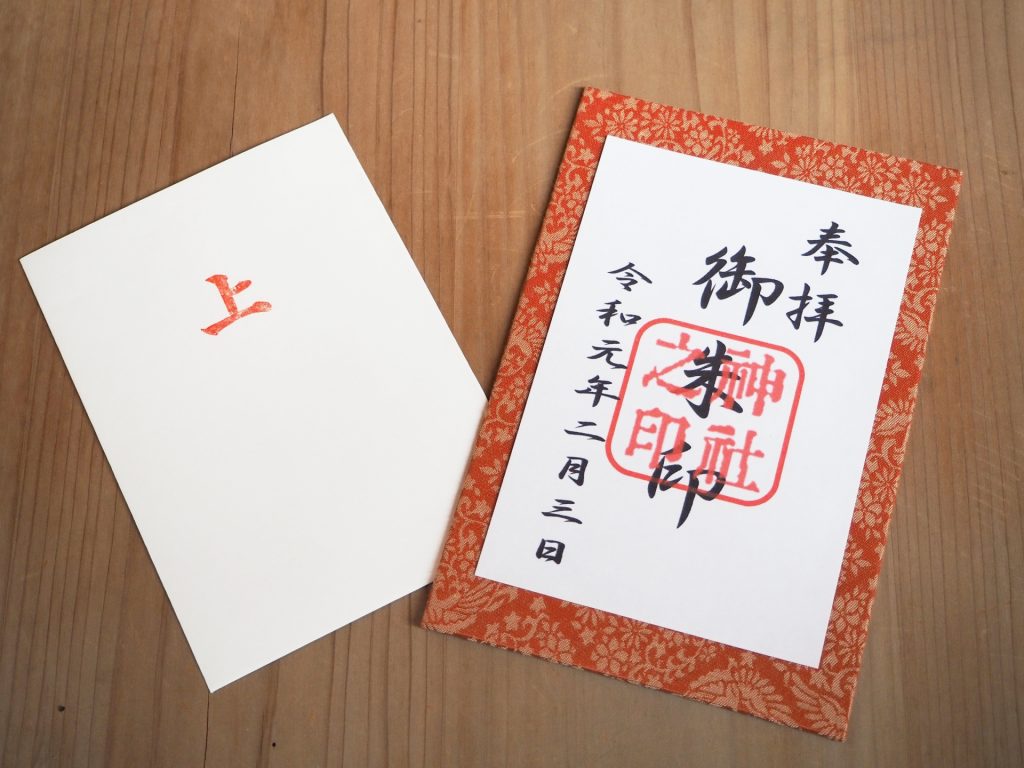 上
奉拝
御朱印
令和元年二月三日
神社
之印